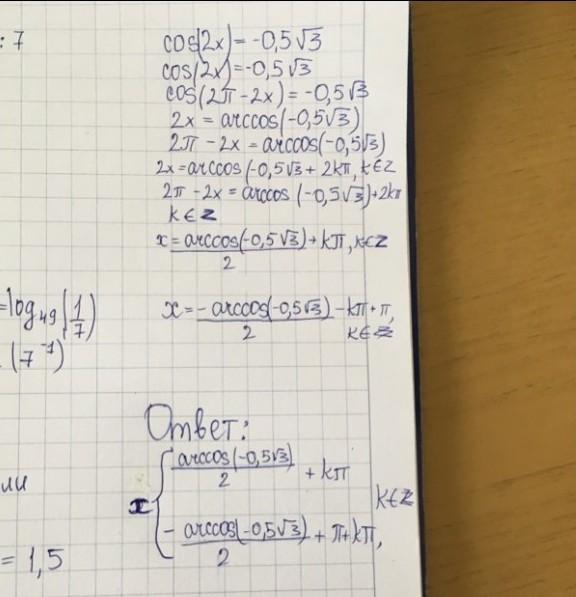 : 7
cos(2x) = -0,5√3
cos(2x) = -0,5√3
cos(2π - 2x) = -0,5√3
2x = arccos(-0,5√3)
2π - 2x = arccos(-0,5√3)
2x = arccos(-0,5√3 + 2kπ, k∈Z
2π - 2x = arccos (-0,5√3) + 2kπ
k∈Z
x = arccos(-0,5√3)/2 + kπ, k∈Z
= log₄₉(1/7)
(7⁻¹)
x = - arccos(-0,5√3)/2 - kπ + π,
k∈Z
Ответ:
arccos(-0,5√3)/2 + kπ
ли
x {
k∈Z
- arccos(-0,5√3)/2 + π + kπ,
= 1,5